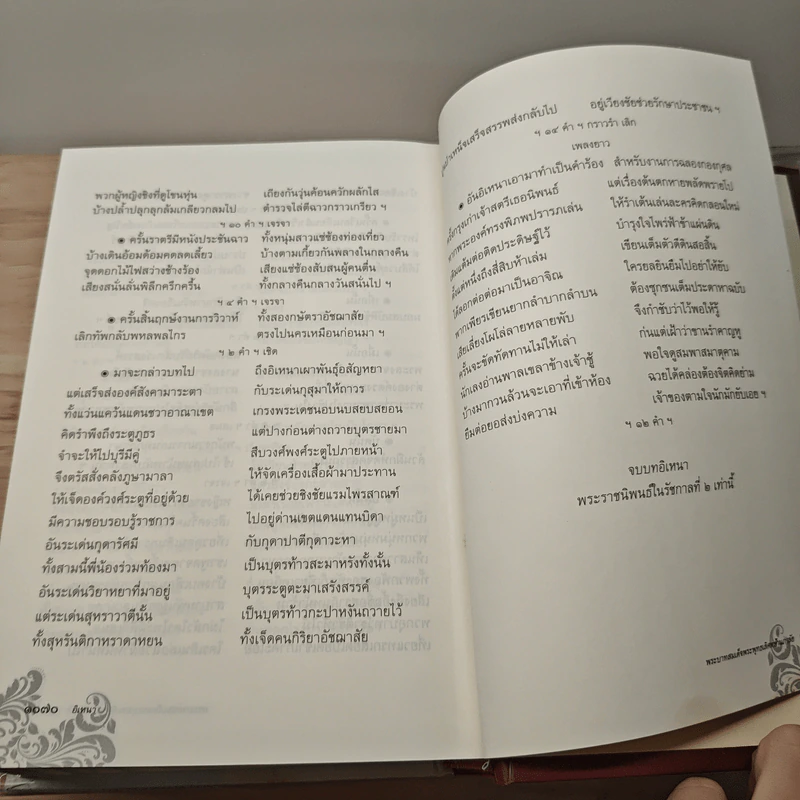 พวกผู้หญิงชิงที่ดูโขนหุ่น เถียงกันวุ่นค้อนควักผลักไส
บ้างปล้ำปลุกลูกล้มเกลียวกลมไป ตำรวจไล่ตีฉาวกราวเกรียว ฯ
ฯ ๑๐ คำ ฯ เจรจา
๏ ครั้นราตรีมีหนังประชันฉาว ทั้งหนุ่มสาวแซ่ซ้องท่องเที่ยว
บ้างเดินอ้อมค้อมคดลดเลี้ยว บ้างตามเกี้ยวกันพลางในกลางคืน
จุดดอกไม้ไฟสว่างช้างร้อง เสียงแซ่ซ้องสับสนผู้คนตื่น
เสียงสนั่นลั่นพิลึกครึกครื้น ทั้งกลางคืนกลางวันสนั่นไป ฯ
ฯ ๔ คำ ฯ เจรจา
๏ ครั้นสิ้นฤกษ์งานการวิวาห์ ทั้งสองกษัตราอัชฌาสัย
เลิกทัพกลับพหลพลไกร ตรงไปนครเหมือนก่อนมา ฯ
ฯ ๒ คำ ฯ เชิด
๏ มาจะกล่าวบทไป ถึงอิเหนาเผ่าพันธุ์อสัญหยา
แต่เสร็จส่งองค์สังคามาระตา กับระเด่นกุสุมาให้ถาวร
ทั้งแว่นแคว้นแดนชวาอาณาเขต เกรงพระเดชนอบนบสยบสยอน
คิดรำพึงถึงระตูภูธร แต่ปางก่อนต่างถวายบุตรชายมา
จำจะให้ไปบุรีมีคู่ สืบวงศ์พงศ์ระตูไปภายหน้า
จึงตรัสสั่งคลังภูษามาลา ให้จัดเครื่องเสื้อผ้ามาประทาน
ให้เจ็ดองค์วงศ์ระตูที่อยู่ด้วย ได้เคยช่วยชิงชัยแรมไพรสาณฑ์
มีความชอบรอบรู้ราชการ ไปอยู่ด่านเขตแดนแทนบิดา
อันระเด่นกุดารัศมี กับกุดาปาตีกุดาวะหา
ทั้งสามนี้พี่น้องร่วมท้องมา เป็นบุตรท้าวสะมาหรังทั้งนั้น
อันระเด่นวิยาหยาที่มาอยู่ บุตรระตูตะมาเสรังสรรค์
แต่ระเด่นสุหราวาตีนั้น เป็นบุตรท้าวกะปาหงันถวายไว้
ทั้งสุหรันติกาหราดาหยน ทั้งเจ็ดคนกิริยาอัชฌาสัย
๑๐๗๐ อิเหนา
บำเหน็จเสร็จสรรพส่งกลับไป อยู่เวียงชัยช่วยรักษาประชาชน ฯ
ฯ ๑๔ คำ ฯ กราวรำ เลิก
เพลงยาว
๏ อันอิเหนาเอามาทำเป็นคำร้อง สำหรับงานการฉลองกองกุศล
ครั้งกรุงเก่าเจ้าสตรีเธอนิพนธ์ แต่เรื่องต้นตกหายพลัดพรายไป
หากพระองค์ทรงพิภพปรารภเล่น ให้รำเต้นเล่นละครคิดกลอนใหม่
เติมแต้มต่อติดประดิษฐ์ไว้ บำรุงใจไพร่ฟ้าข้าแผ่นดิน
ตั้งแต่หนึ่งถึงสี่สิบห้าเล่ม เขียนเต็มตัวตีดินสอสิ้น
ได้ลอกต่อต่อมาเป็นอาจิณ ใครยลยินยืมไปอย่าให้ยับ
พากเพียรเขียนยากลำบากลำบน ต้องซุกซนเต็มประดาหาฉบับ
เสียเสี่ยงโผโล่ลายหลายพับ จึงกำชับว่าไว้พอให้รู้
ครั้นจะขัดทัดทานไม่ให้เล่า ก่นแต่เฝ้าว่าขานรำคาญหู
นักเลงอ่านพาลเซลาข้างเจ้าชู้ พอใจดูสมพาสมาตุคาม
บ้างมากวนล้วนจะเอาที่เข้าห้อง ฉวยได้คล่องต้องจิตคิดย่าม
ยืมต่อยอส่งบ่งความ เจ้าของตามใจนักมักยับเอย ฯ
ฯ ๑๒ คำ ฯ
จบบทอิเหนา
พระราชนิพนธ์ในรัชกาลที่ ๒ เท่านี้